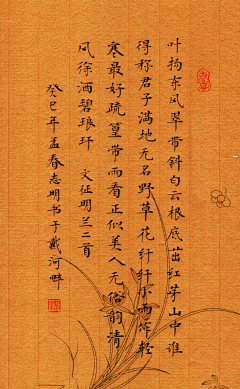 叶拘东风翠带斜白云根底茁红芽山中谁
得称君子满地元名野草花纤纤小雨作轻
寒最好疏篁带雨看正似美人无俗韵清
风徐洒碧琅玕 文征明兰二首
癸巳年孟春志明书于戴河畔